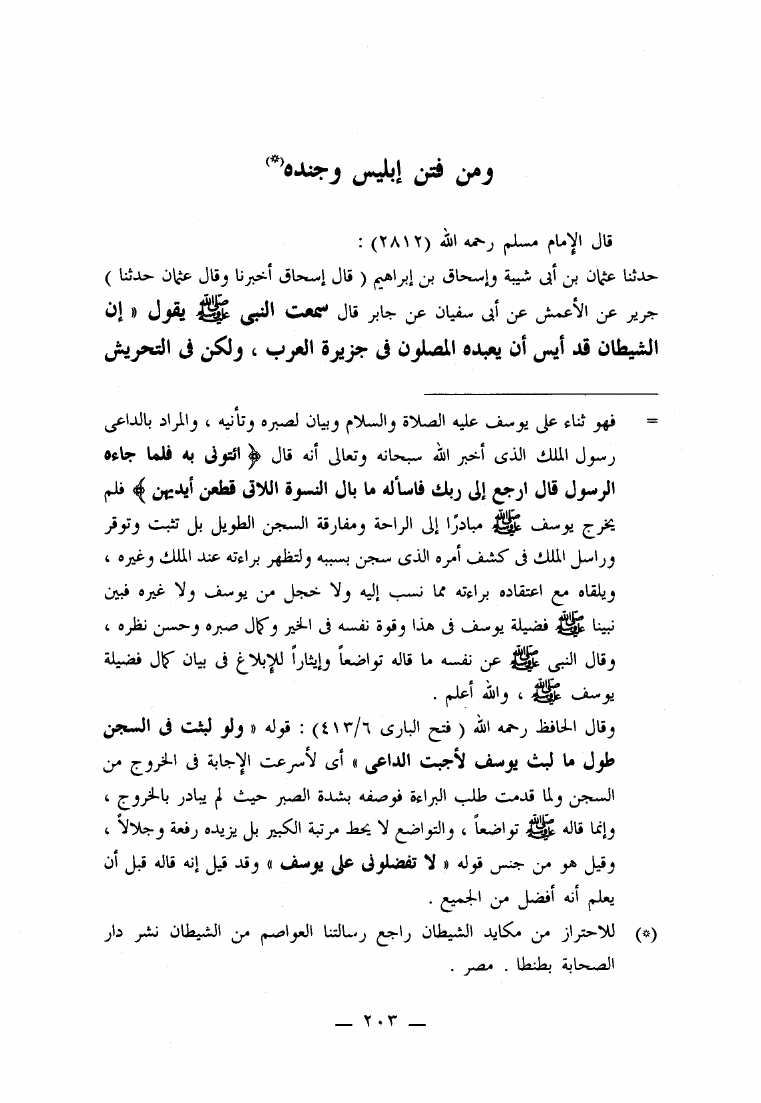 ومن فتن إبليس وجنده(*)
قال الإمام مسلم رحمه الله (٢٨١٢) :
حدثنا عثمان بن أبى شيبة وإسحاق بن إبراهيم ( قال إسحاق أخبرنا وقال عثمان حدثنا )
جرير عن الأعمش عن أبى سفيان عن جابر قال سمعت النبى ﷺ يقول « إن
الشيطان قد أيس أن يعبده المصلون فى جزيرة العرب ، ولكن فى التحريش
= فهو ثناء على يوسف عليه الصلاة والسلام وبيان لصبره وتأنيه ، والمراد بالداعى
رسول الملك الذى أخبر الله سبحانه وتعالى أنه قال ﴿ ائتونى به فلما جاءه
الرسول قال ارجع إلى ربك فاسأله ما بال النسوة اللاتى قطعن أيديهن ﴾ فلم
يخرج يوسف ﷺ مبادرًا إلى الراحة ومفارقة السجن الطويل بل تثبت وتوقر
وراسل الملك فى كشف أمره الذى سجن بسببه ولتظهر براءته عند الملك وغيره ،
ويلقاه مع اعتقاده براءته مما نسب إليه ولا خجل من يوسف ولا غيره فبين
نبينا ﷺ فضيلة يوسف فى هذا وقوة نفسه فى الخير وكمال صبره وحسن نظره ،
وقال النبى ﷺ عن نفسه ما قاله تواضعاً وإيثاراً للإبلاغ فى بيان كمال فضيلة
يوسف ﷺ ، والله أعلم .
وقال الحافظ رحمه الله ( فتح البارى ٤١٣/٦) : قوله « ولو لبثت فى السجن
طول ما لبث يوسف لأجبت الداعى » أى لأسرعت الإجابة فى الخروج من
السجن ولما قدمت طلب البراءة فوصفه بشدة الصبر حيث لم يبادر بالخروج ،
وإنما قاله ﷺ تواضعاً ، والتواضع لا يحط مرتبة الكبير بل يزيده رفعة وجلالاً ،
وقيل هو من جنس قوله « لا تفضلونى على يوسف » وقد قيل إنه قاله قبل أن
يعلم أنه أفضل من الجميع .
(*) للاحتراز من مكايد الشيطان راجع رسالتنا العواصم من الشيطان نشر دار
الصحابة بطنطا . مصر .
— ٢٠٣ —